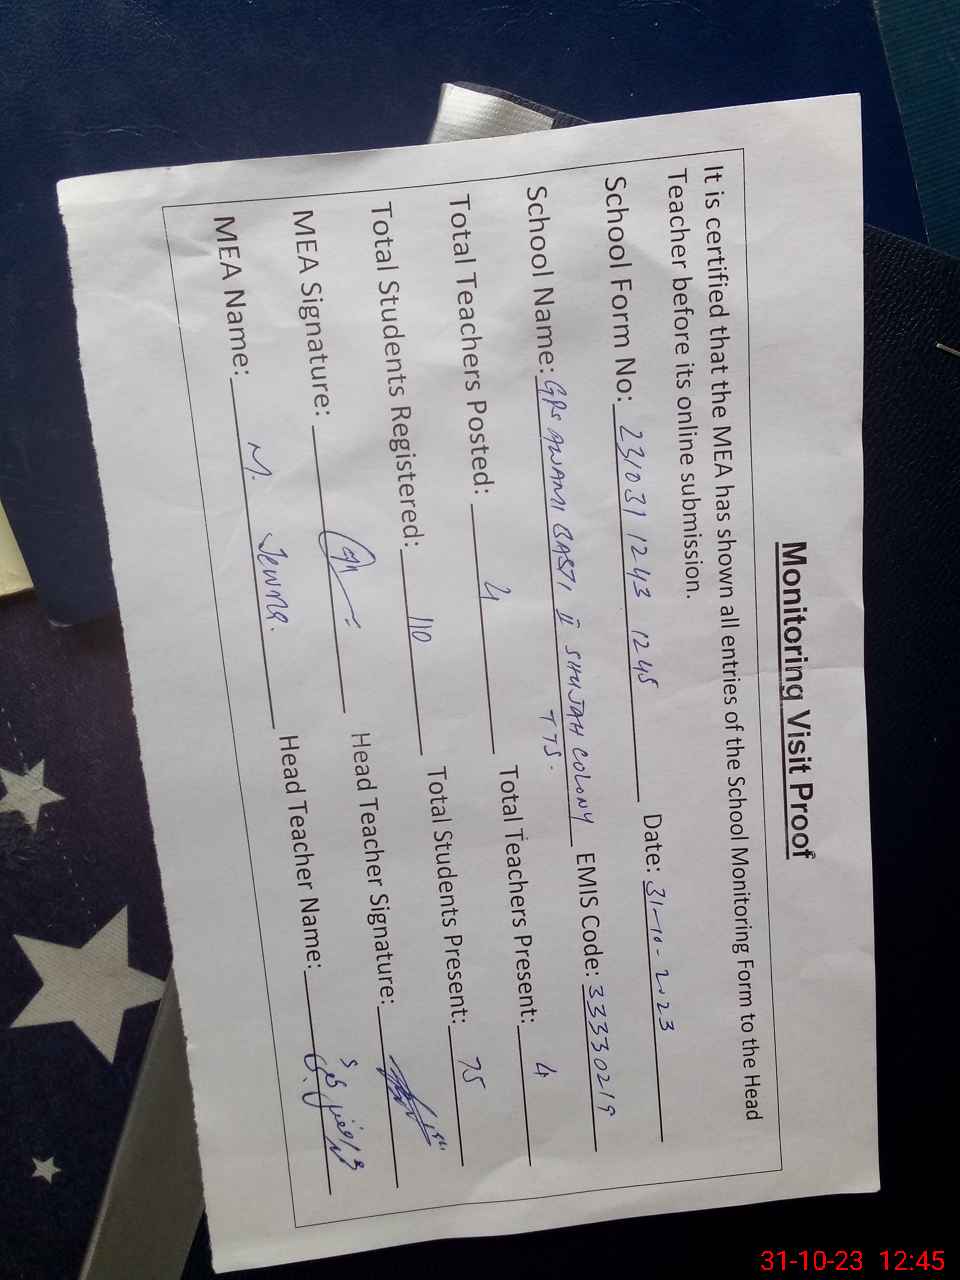 Monitoring Visit Proof
It is certified that the MEA has shown all entries of the School Monitoring Form to the Head
Teacher before its online submission.
School Form No: 231031 1243 1245 Date: 31-10-2023
School Name: GPS AWAMI BASTI II SHUJAH COLONY EMIS Code: 33330219
TTS.
Total Teachers Posted: 4 Total Teachers Present: 4
Total Students Registered: 110 Total Students Present: 75
MEA Signature: Head Teacher Signature:
MEA Name: M. Head Teacher Name:
31-10-23 12:45